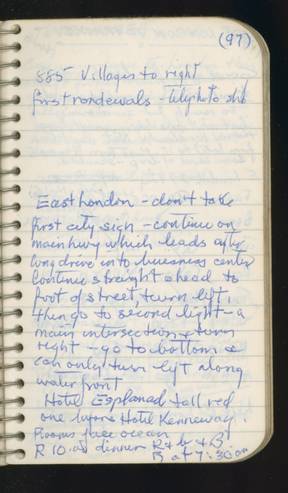 (97)
885 Villages to right
first rondewals - telephoto shot
East London - don't take
first city sign - continue on
main hwy which leads after
long drive into business center
Continue straight ahead to
foot of street, turn left,
then go to second light - a
main intersection & turn
right - go to bottom &
can only turn left along
water front
Hotel Esplanade tall red
one turns Hotel Kenneway.
Rooms face ocean
R 10.00 dinner R & b & B
B at 7:30 am